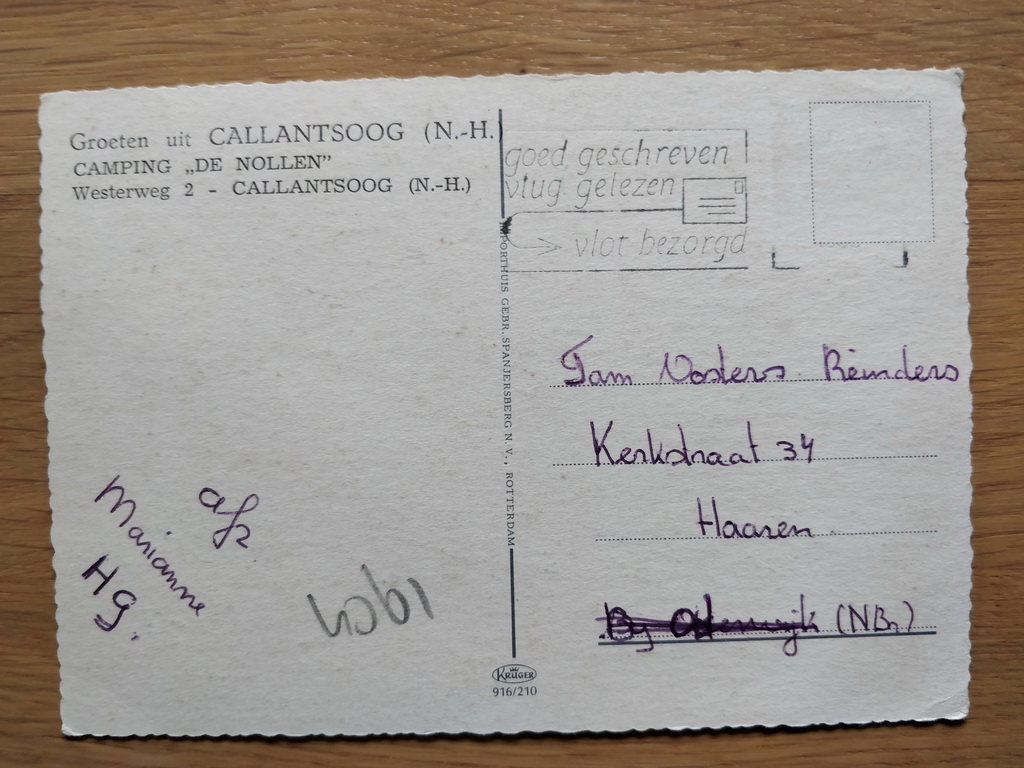 Groeten uit CALLANTSOOG (N.-H.)
CAMPING „DE NOLLEN”
Westerweg 2 - CALLANTSOOG (N.-H.)
goed geschreven
vlug gelezen
vlot bezorgd
IMPORTHUIS GEBR. SPANJERSBERG N.V., ROTTERDAM
Fam Oosters Reinders
Kerkstraat 34
Haaren
(NBr)
afz
Marianne
HG.
KRÜGER
916/210